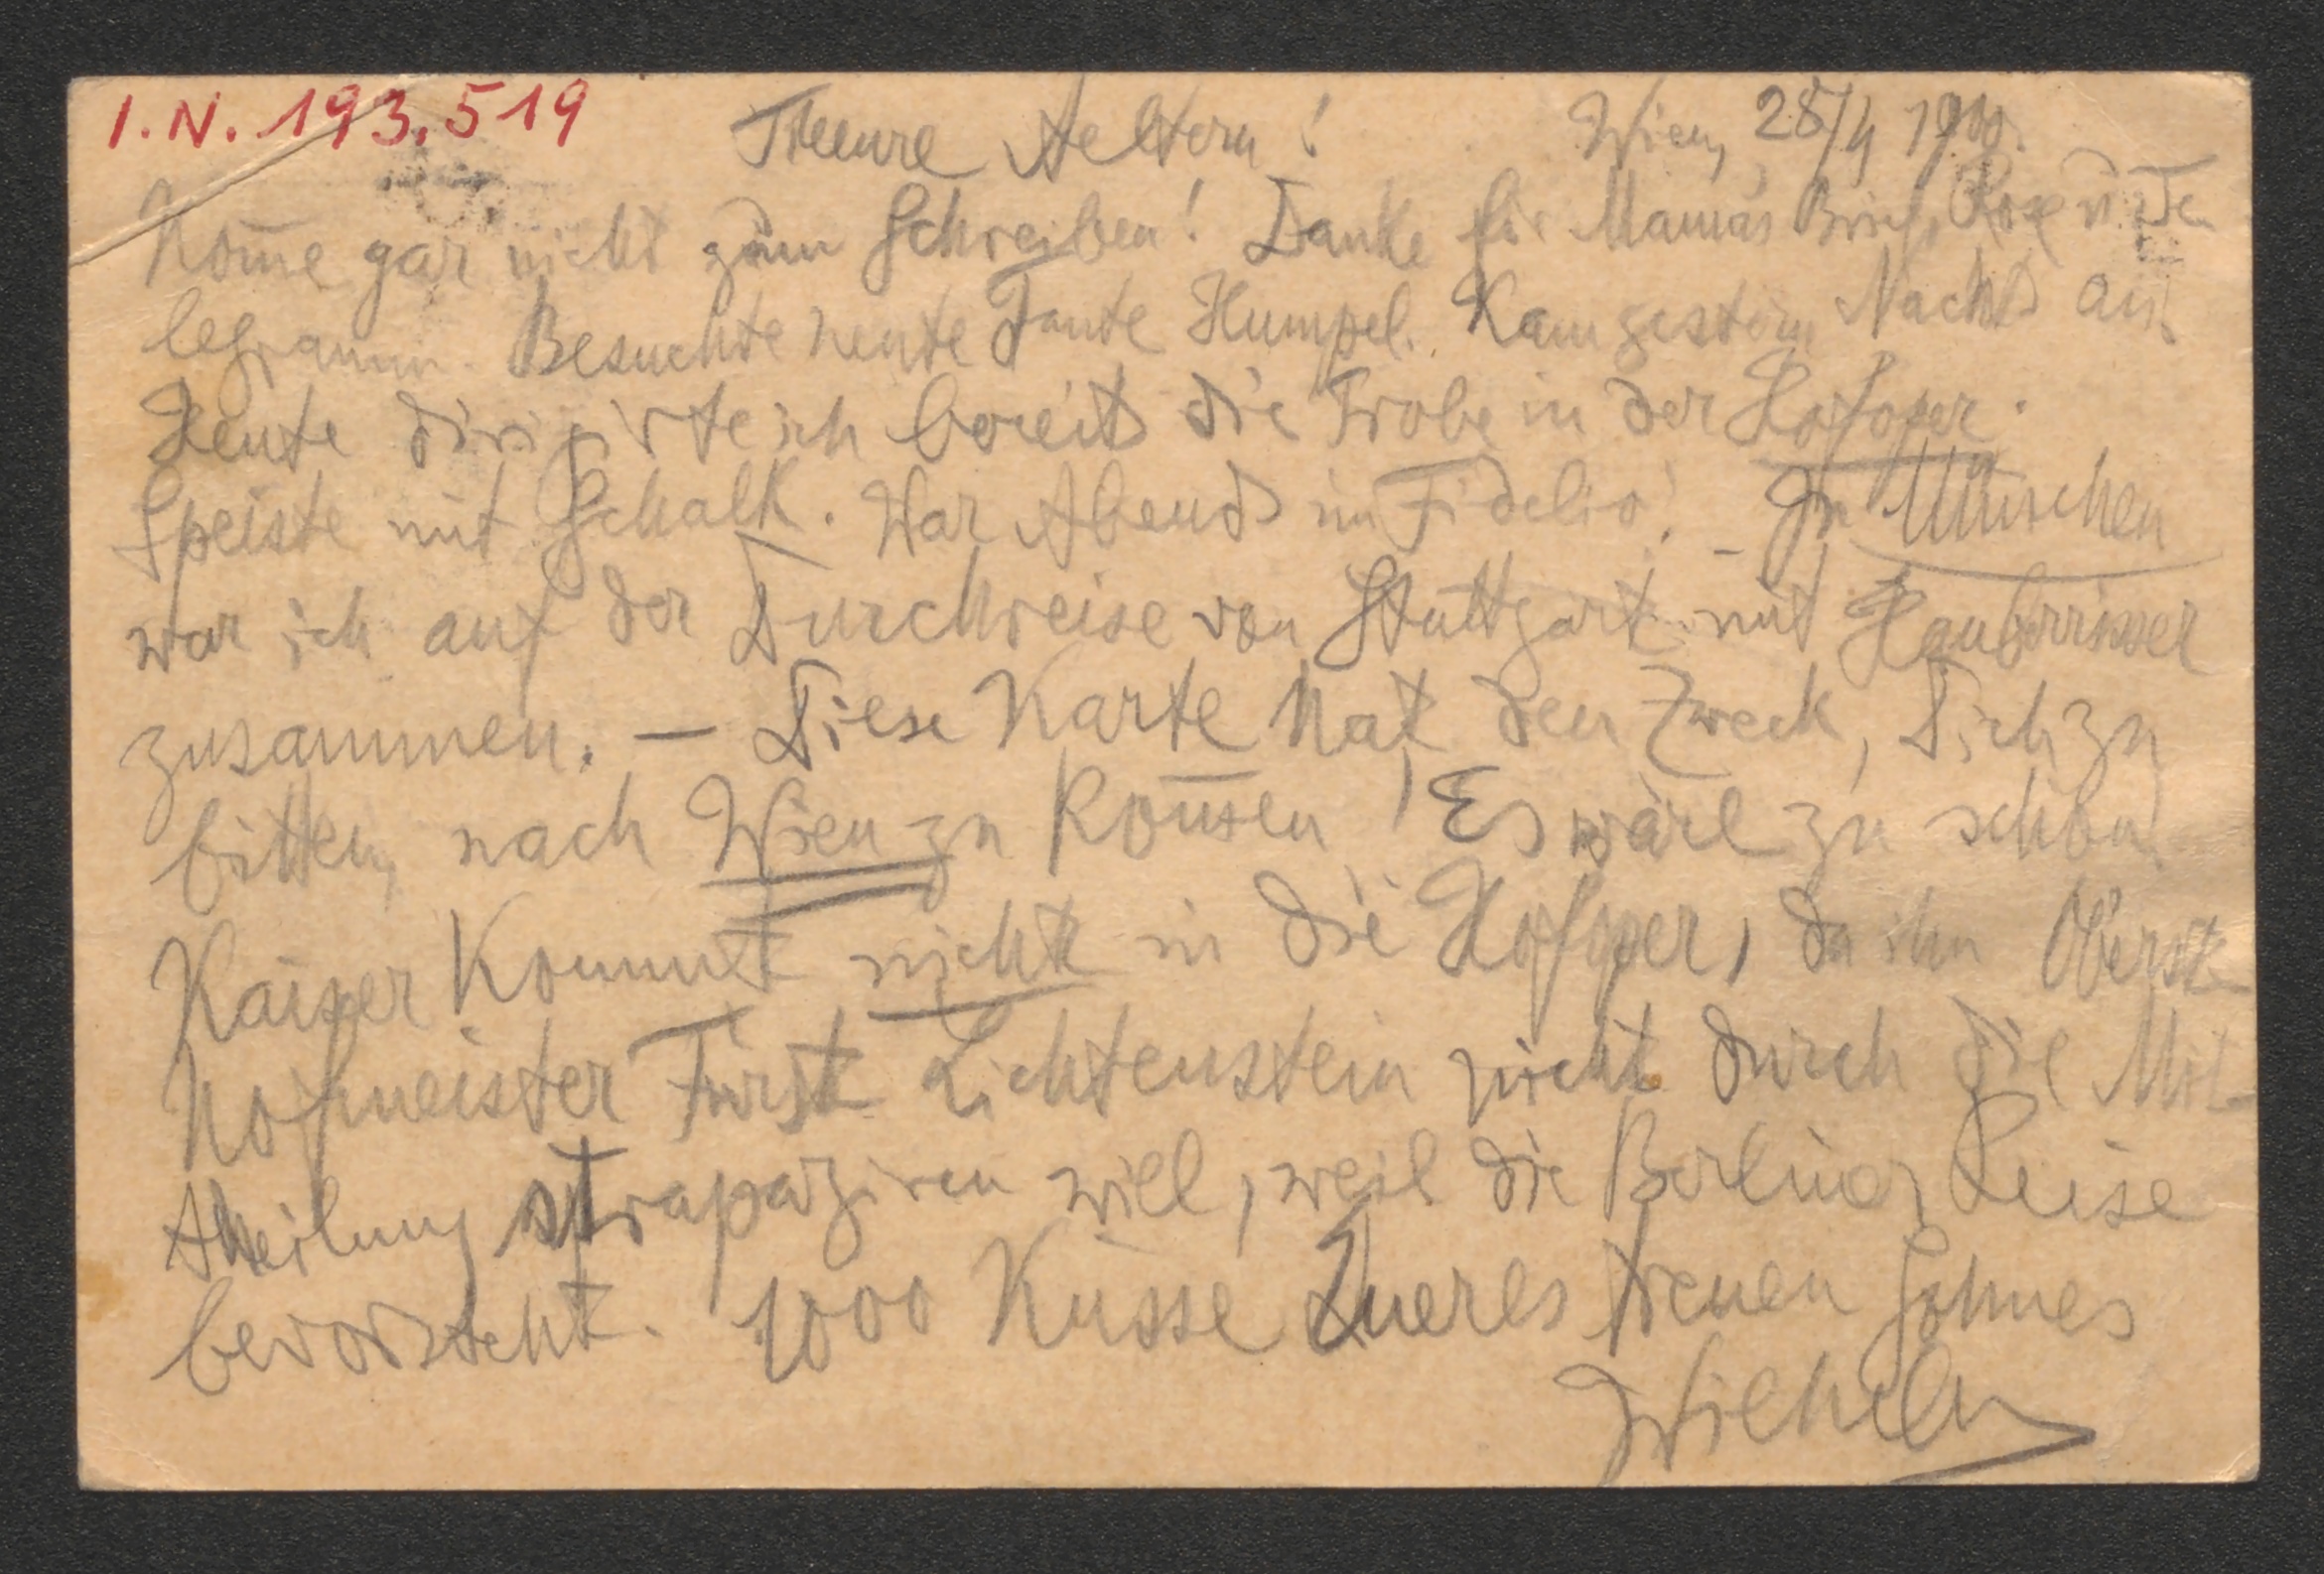 I.N. 193.519
Theure Aeltern! Wien, 28/4 1900.
Kom̅e gar nicht zum Schreiben! Danke für Mama's Brief, u Te
legramm. Besuchte heute Tante Humpel. Kam gestern Nachts an!
Heute dirigirte ich bereits die Probe in der Hofoper.
Speiste mit Schalk. War Abends im Fidelio! – In München
war ich auf der Durchreise von Stuttgart mit Hauberrisser
zusammen. – Diese Karte hat den Zweck, Dich zu
bitten, nach Wien zu kom̅en! Es wäre zu schön!
Kaiser kommt nicht in die Hofoper, da ihn Oberst
hofmeister Fürst Lichtenstein nicht durch die Mit-
theilung strapaziren will, weil die Berliner Reise
bevorsteht. 1000 Küsse Eueres treuen Sohnes
Wilhelm